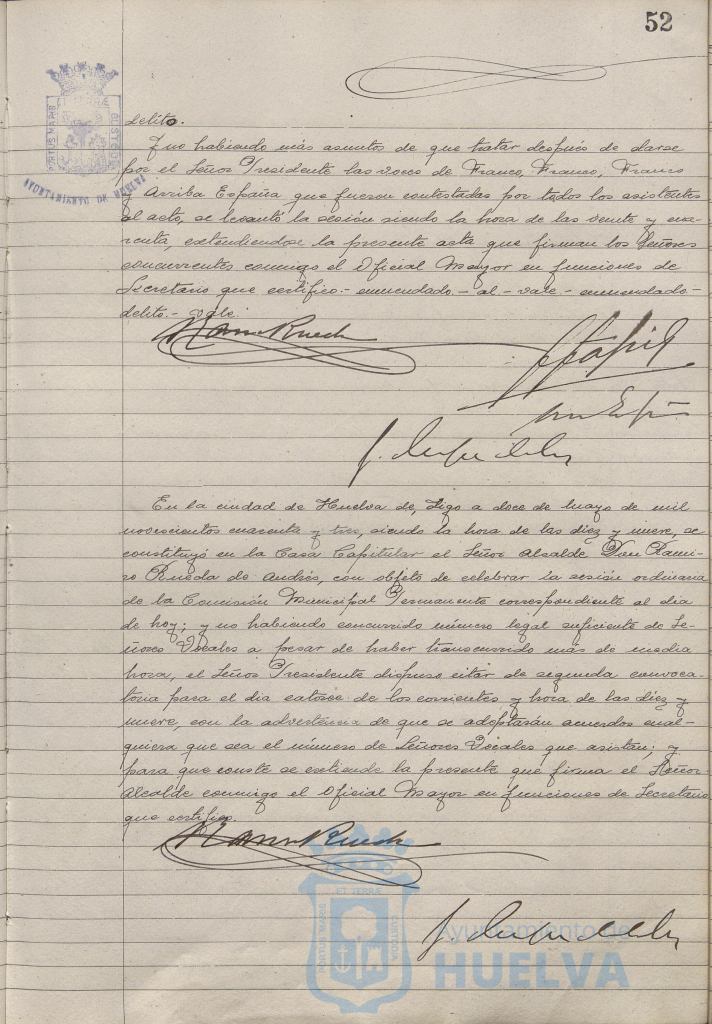 52
PORTUS MARIS
ET TERRÆ
CUSTODIA
AYUNTAMIENTO DE HUELVA
delito.
Y no habiendo más asuntos de que tratar después de darse
por el Señor Presidente las voces de Franco, Franco, Franco
y Arriba España que fueron contestadas por todos los asistentes
al acto, se levantó la sesión siendo la hora de las veinte y cua-
renta, extendiéndose la presente acta que firman los Señores
concurrentes conmigo el Oficial Mayor en funciones de
Secretario que certifico.- enmendado - al - vale - enmendado -
delito.- vale.
En la ciudad de Huelva de, digo a doce de mayo de mil
novecientos cuarenta y tres, siendo la hora de las diez y nueve, se
constituyó en la Casa Capitular el Señor Alcalde Don Rami-
ro Rueda de Andrés, con objeto de celebrar la sesión ordinaria
de la Comisión Municipal Permanente correspondiente al día
de hoy; y no habiendo concurrido número legal suficiente de Se-
ñores Vocales a pesar de haber transcurrido más de media
hora, el Señor Presidente dispuso citar de segunda convoca-
toria para el día catorce de los corrientes y hora de las diez y
nueve, con la advertencia de que se adoptarán acuerdos cual-
quiera que sea el número de Señores Vocales que asistan; y
para que conste se extiende la presente que firma el Señor
Alcalde conmigo el Oficial Mayor en funciones de Secretario
que certifico.
PORTUS MARIS
ET TERRÆ
CUSTODIA
Ayuntamiento de
HUELVA